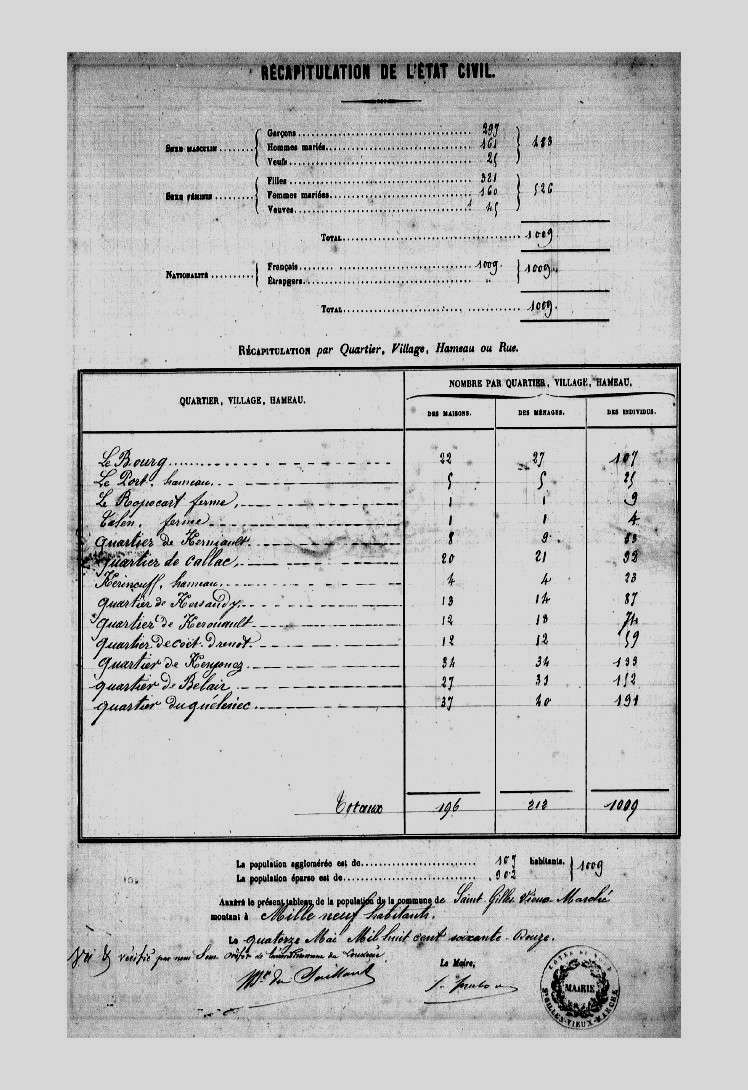 RÉCAPITULATION DE L'ÉTAT CIVIL.
SEXE MASCULIN ........ { Garçons ........ 297
Hommes mariés ........ 161
Veufs ........ 25 } 483
SEXE FÉMININ ........ { Filles ........ 321
Femmes mariées ........ 160
Veuves ........ 45 } 526
TOTAL ........ 1009.
NATIONALITÉ ........ { Français ........ 1009.
Étrangers ........ " } 1009.
TOTAL ........ 1009.
RÉCAPITULATION par Quartier, Village, Hameau ou Rue.
QUARTIER, VILLAGE, HAMEAU. NOMBRE PAR QUARTIER, VILLAGE, HAMEAU.
DES MAISONS. DES MÉNAGES. DES INDIVIDUS.
Le Bourg 22 27 107
Le Port, hameau 5 5 25
Le Ropocart ferme, 1 1 9
ferme 1 1 4
quartier de 8 9
quartier de Callac, 20 21
hameau 4 4 23
quartier de 13 14 87
quartier de 12 13 74
quartier de coët-drenot 12 12 59
quartier de 34 34
quartier de Belair 27 31 152
quartier du quélénec 37 40 191
Totaux 196 212 1009
La population agglomérée est de ........ 107 habitants.
La population éparse est de ........ 902 } 1009
Arrêté le présent tableau de la population de la commune de Saint Gilles Vieux Marché
montant à Mille neuf habitants.
Le quatorze Mai Mil huit cent soixante-Douze.
Vu & vérifié par nous Sous Préfet de l'arrondissement de Loudéac
Le Maire,
MAIRIE
St GILLES-VIEUX-MARCHÉ